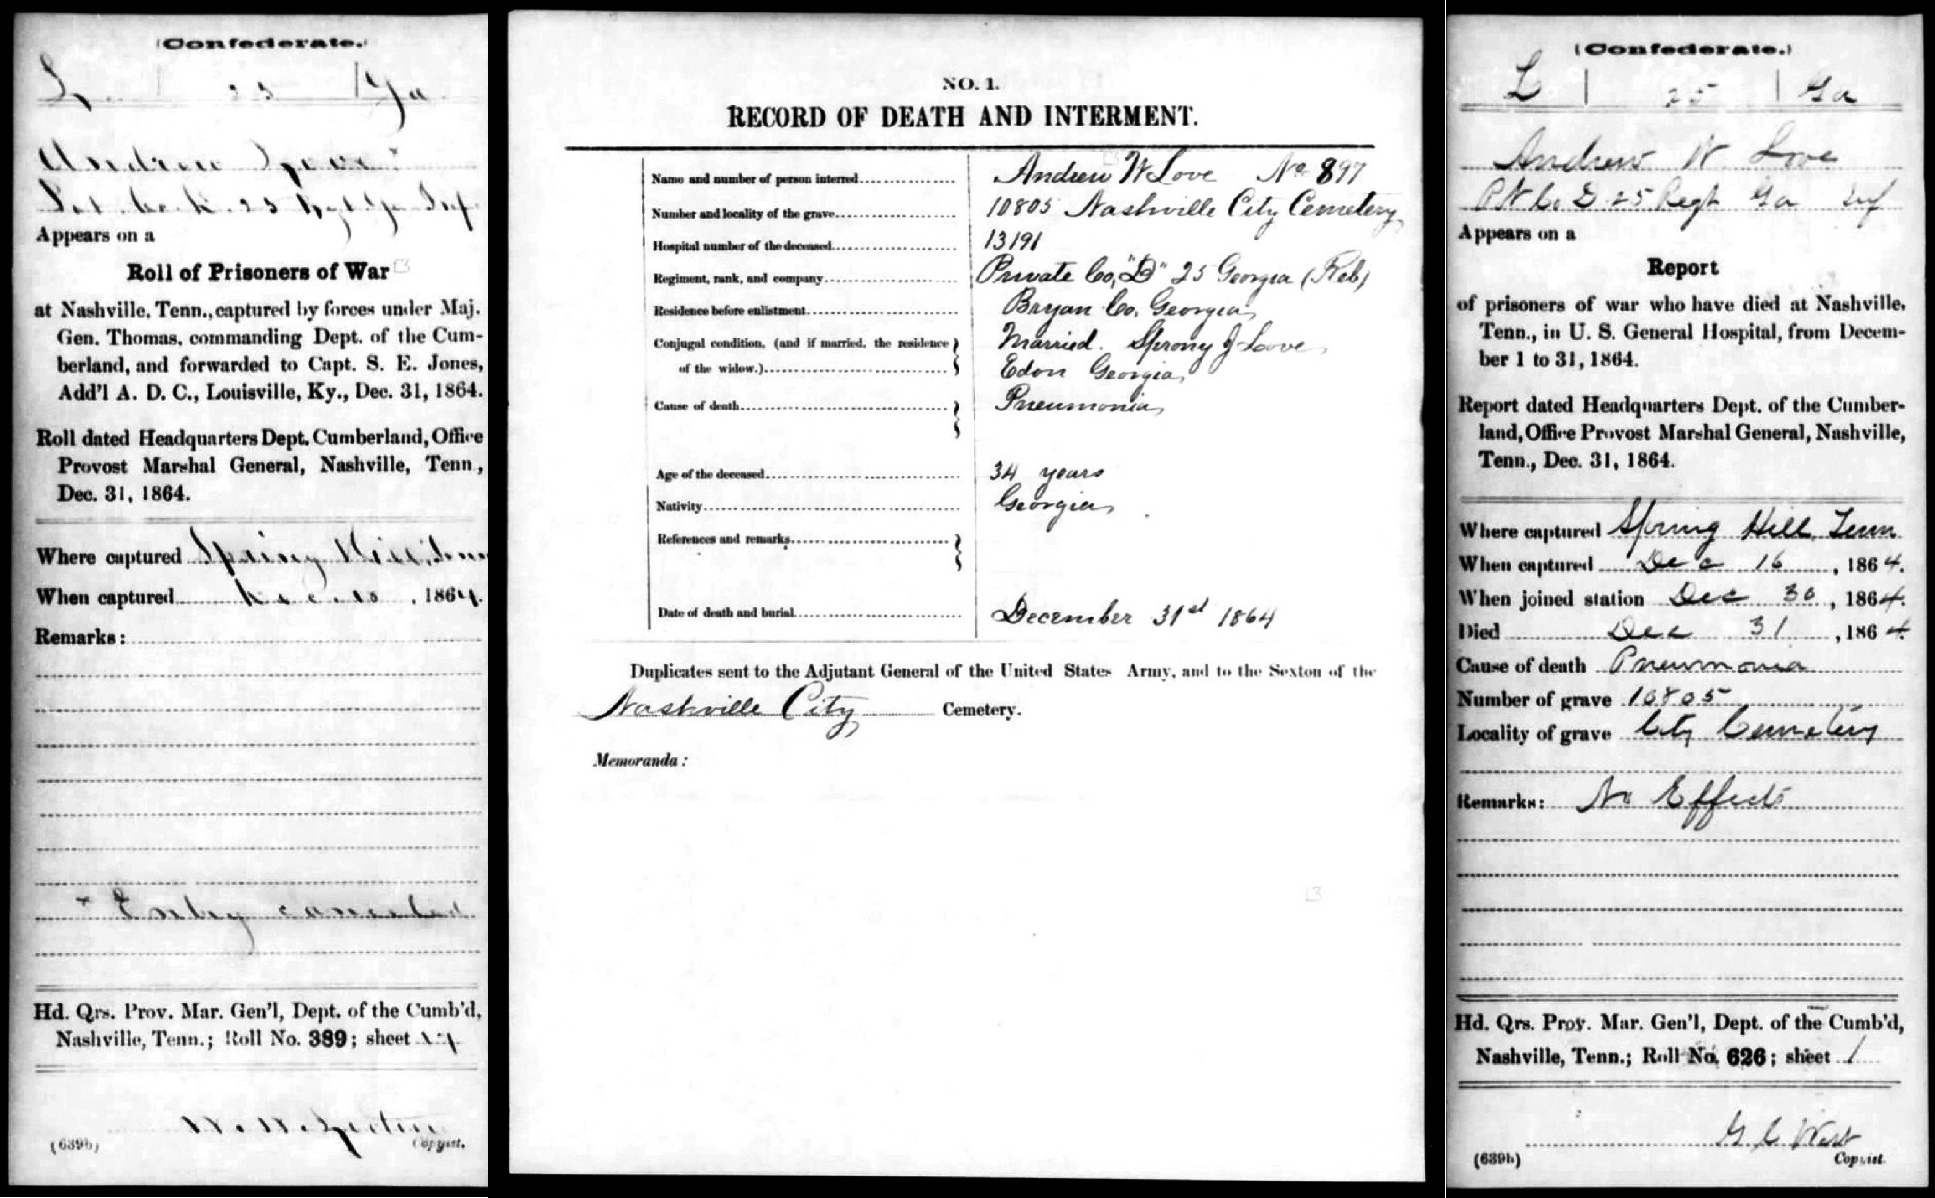 (Confederate.)
L. | 25 | Ga
Andrew Love *
Pvt. Co. K. 25 Rgt. Ga. Inf.
Appears on a
Roll of Prisoners of War
at Nashville, Tenn., captured by forces under Maj.
Gen. Thomas, commanding Dept. of the Cum-
berland, and forwarded to Capt. S. E. Jones,
Add'l A. D. C., Louisville, Ky., Dec. 31, 1864.
Roll dated Headquarters Dept. Cumberland, Office
Provost Marshal General, Nashville, Tenn.,
Dec. 31, 1864.
Where captured Spring Hill, Tenn
When captured Dec. , 1864.
Remarks:
* Entry canceled.
Hd. Qrs. Prov. Mar. Gen'l, Dept. of the Cumb'd,
Nashville, Tenn.; Roll No. 389; sheet
(639b) Copyist.
NO. 1.
RECORD OF DEATH AND INTERMENT.
Name and number of person interred Andrew W Love No 897
Number and locality of the grave 10805 Nashville City Cemetery
Hospital number of the deceased 13191
Regiment, rank, and company Private Co, "D" 25 Georgia (Reb)
Residence before enlistment Bryan Co. Georgia
Conjugal condition, (and if married, the residence Married. J Love
of the widow.) Eden Georgia
Cause of death Pneumonia
Age of the deceased 34 years
Nativity Georgia
References and remarks
Date of death and burial December 31st 1864
Duplicates sent to the Adjutant General of the United States Army, and to the Sexton of the
Nashville City Cemetery.
Memoranda:
(Confederate.)
L | 25 | Ga
Andrew W Love
Pvt Co. D 25 Regt Ga Inf
Appears on a
Report
of prisoners of war who have died at Nashville,
Tenn., in U. S. General Hospital, from Decem-
ber 1 to 31, 1864.
Report dated Headquarters Dept. of the Cumber-
land, Office Provost Marshal General, Nashville,
Tenn., Dec. 31, 1864.
Where captured Spring Hill, Tenn
When captured Dec 16, 1864.
When joined station Dec 30, 1864.
Died Dec 31, 1864
Cause of death Pneumonia
Number of grave 10805
Locality of grave City Cemetery
Remarks: No Effects
Hd. Qrs. Prov. Mar. Gen'l, Dept. of the Cumb'd,
Nashville, Tenn.; Roll No. 626; sheet 1
G C West
(639b) Copyist.